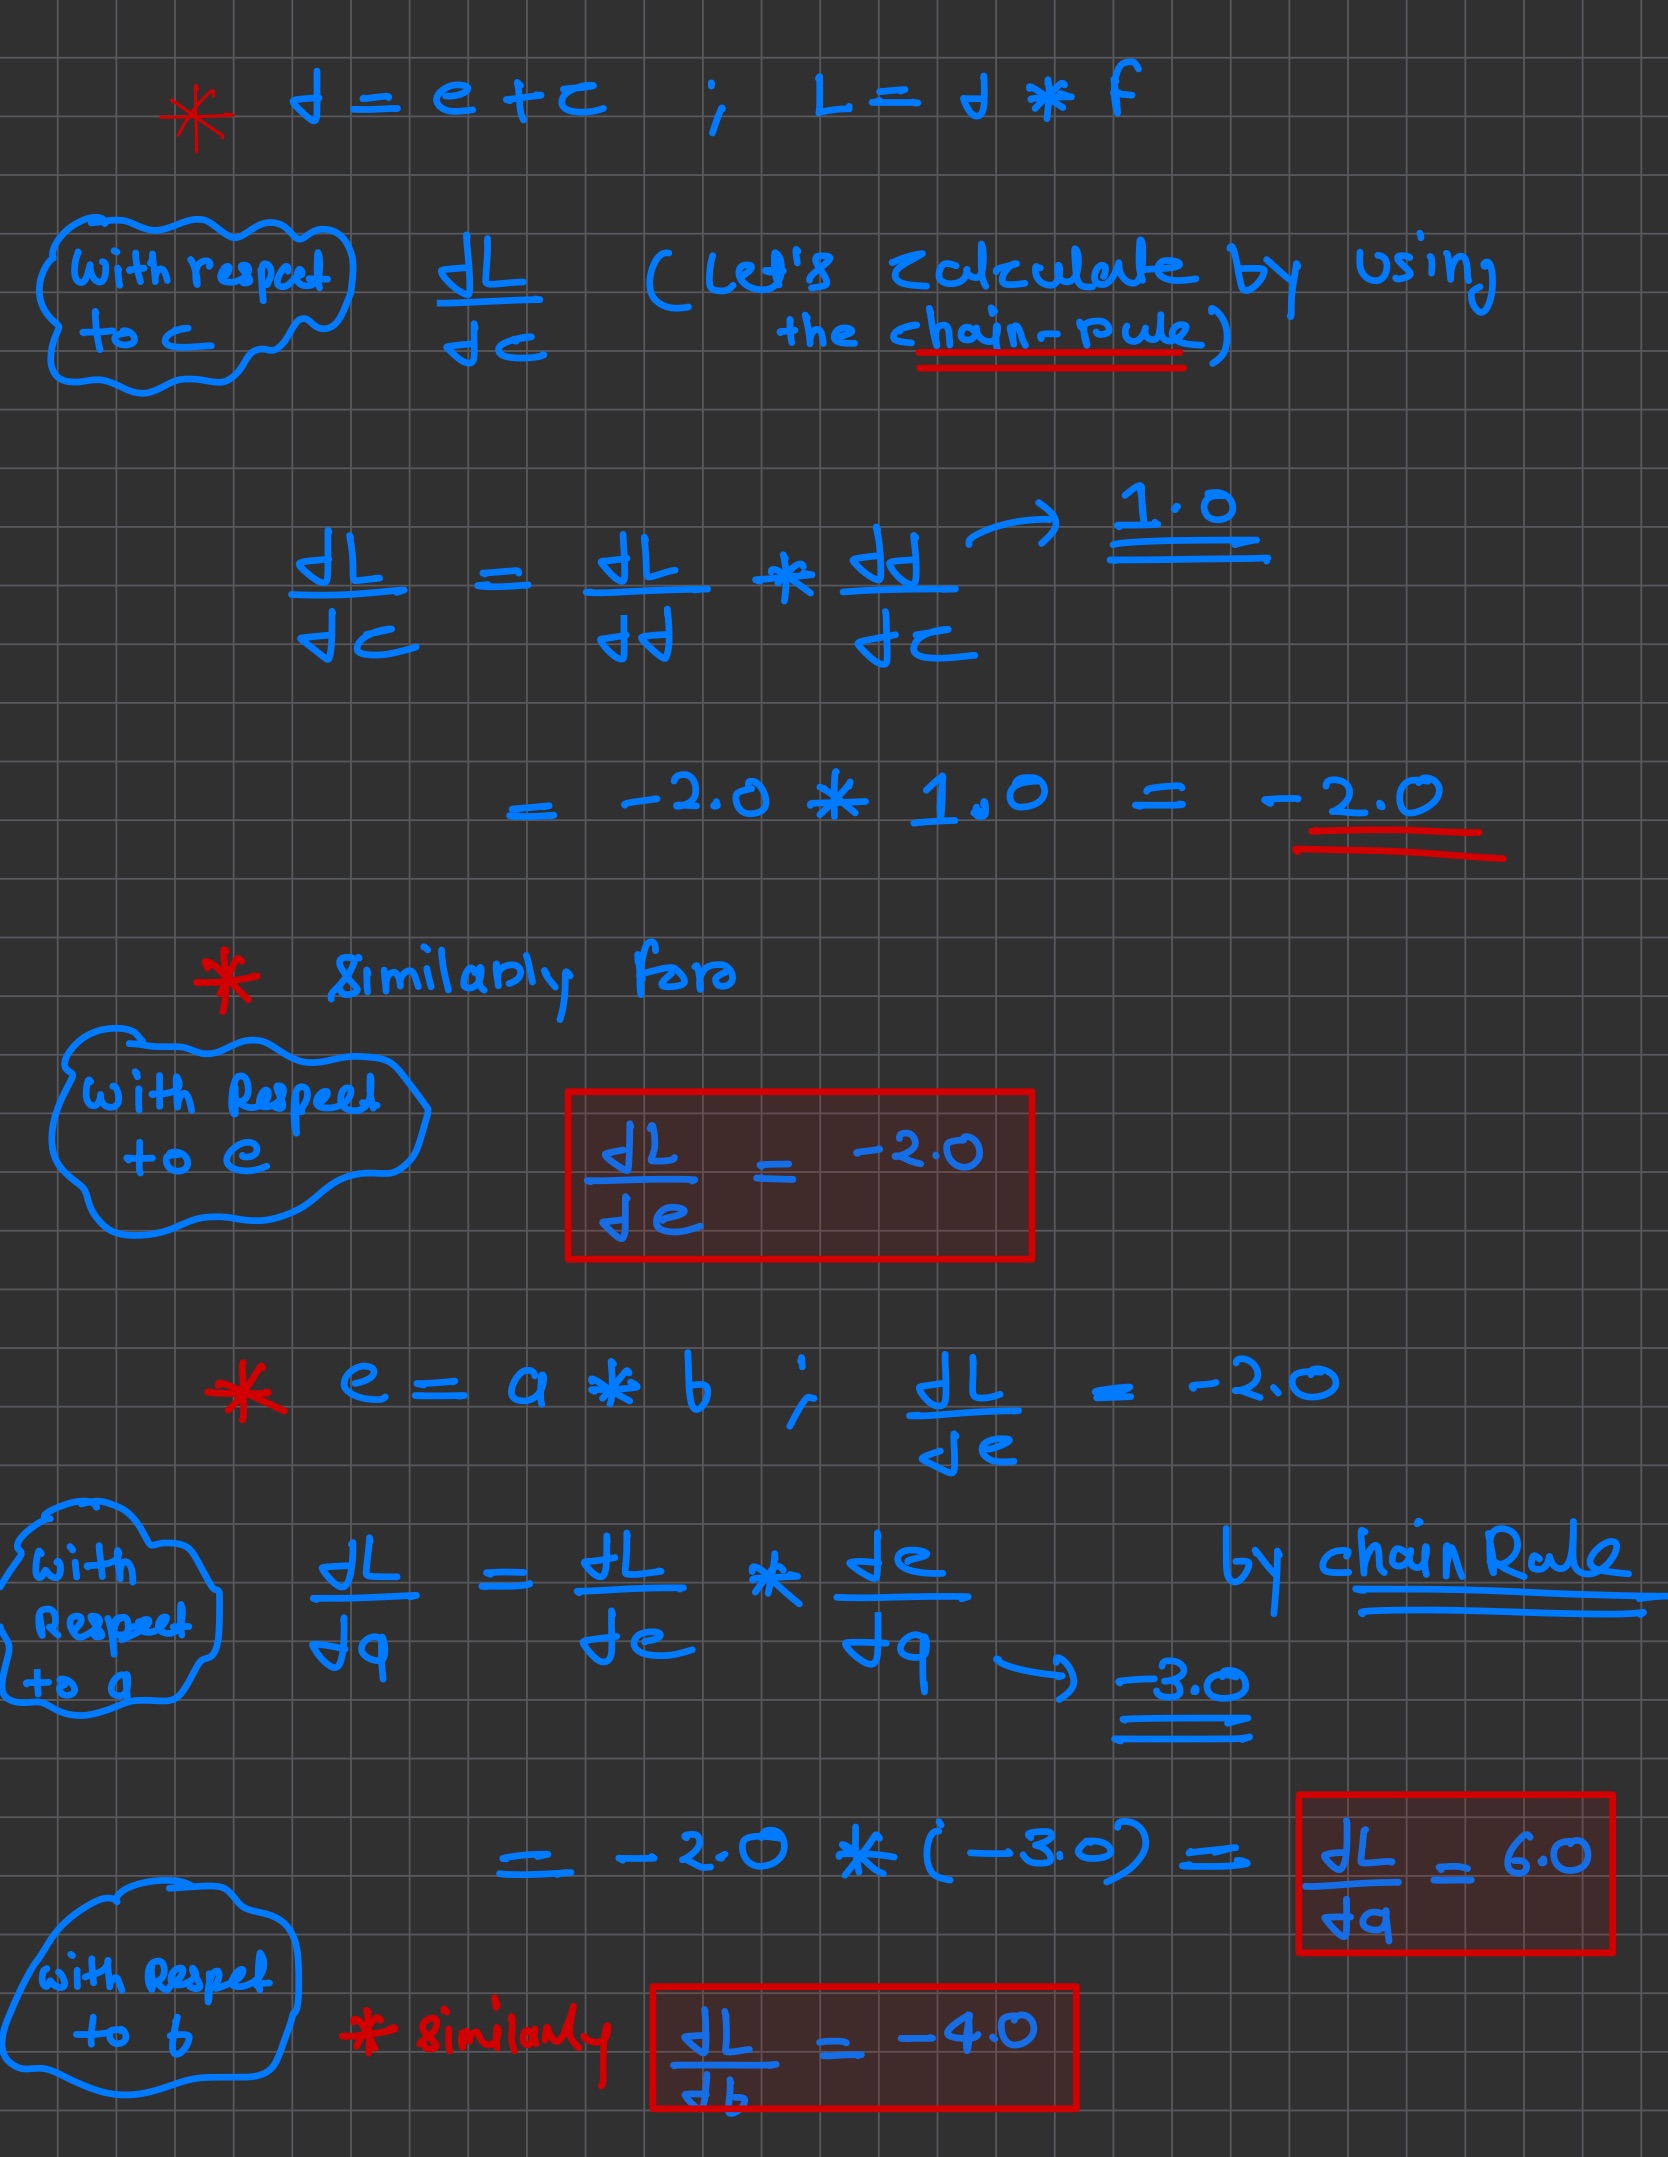 * d = e + c ; L = d * f
With respect to c
dL/dc (Let's calculate by using
the chain-rule)
dL/dc = dL/dd * dd/dc → 1.0
= -2.0 * 1.0 = -2.0
* Similarly for
With Respect
to e
dL/de = -2.0
* e = a * b ; dL/de = -2.0
With
Respect
to a
dL/da = dL/de * de/da → -3.0 by chain Rule
= -2.0 * (-3.0) = dL/da = 6.0
With Respet
to b
* Similarly dL/db = -4.0